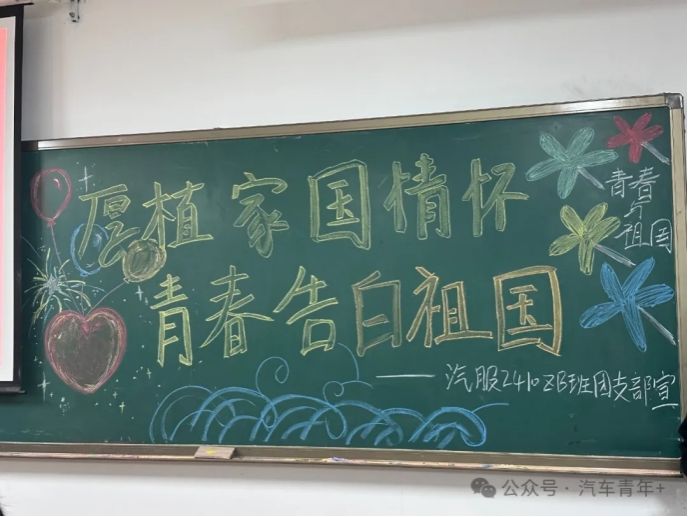 厚植家国情怀
青春告白祖国
青春
与
祖国
——汽服2410ZB班团支部宣
公众号·汽车青年+